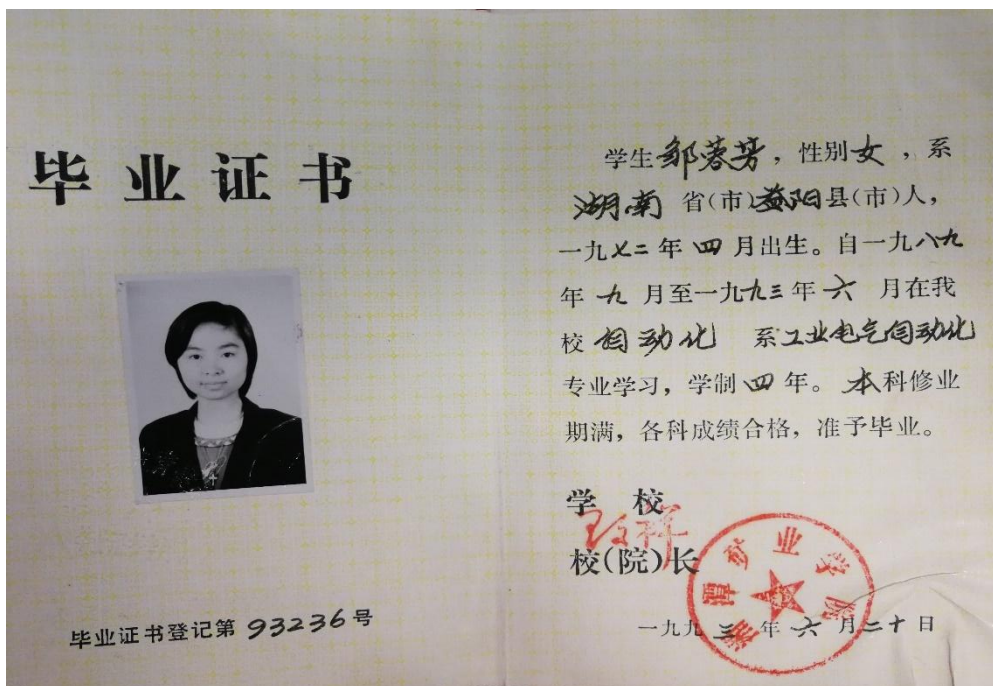 毕业证书
毕业证书登记第 93236 号
学生邹蓉芳，性别女，系
湖南省(市)益阳县(市)人，
一九七二年四月出生。自一九八九
年九月至一九九三年六月在我
校自动化系工业电气自动化
专业学习，学制四年。本科修业
期满，各科成绩合格，准予毕业。
学校
校(院)长
湘潭矿业学院
一九九三年六月二十日